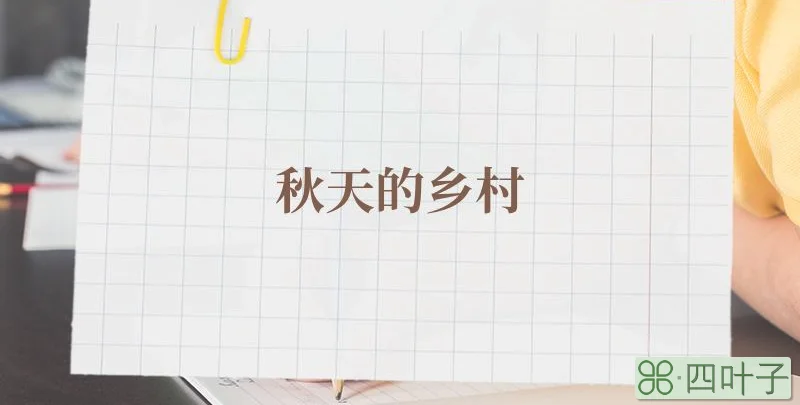 秋天的乡村
四叶子